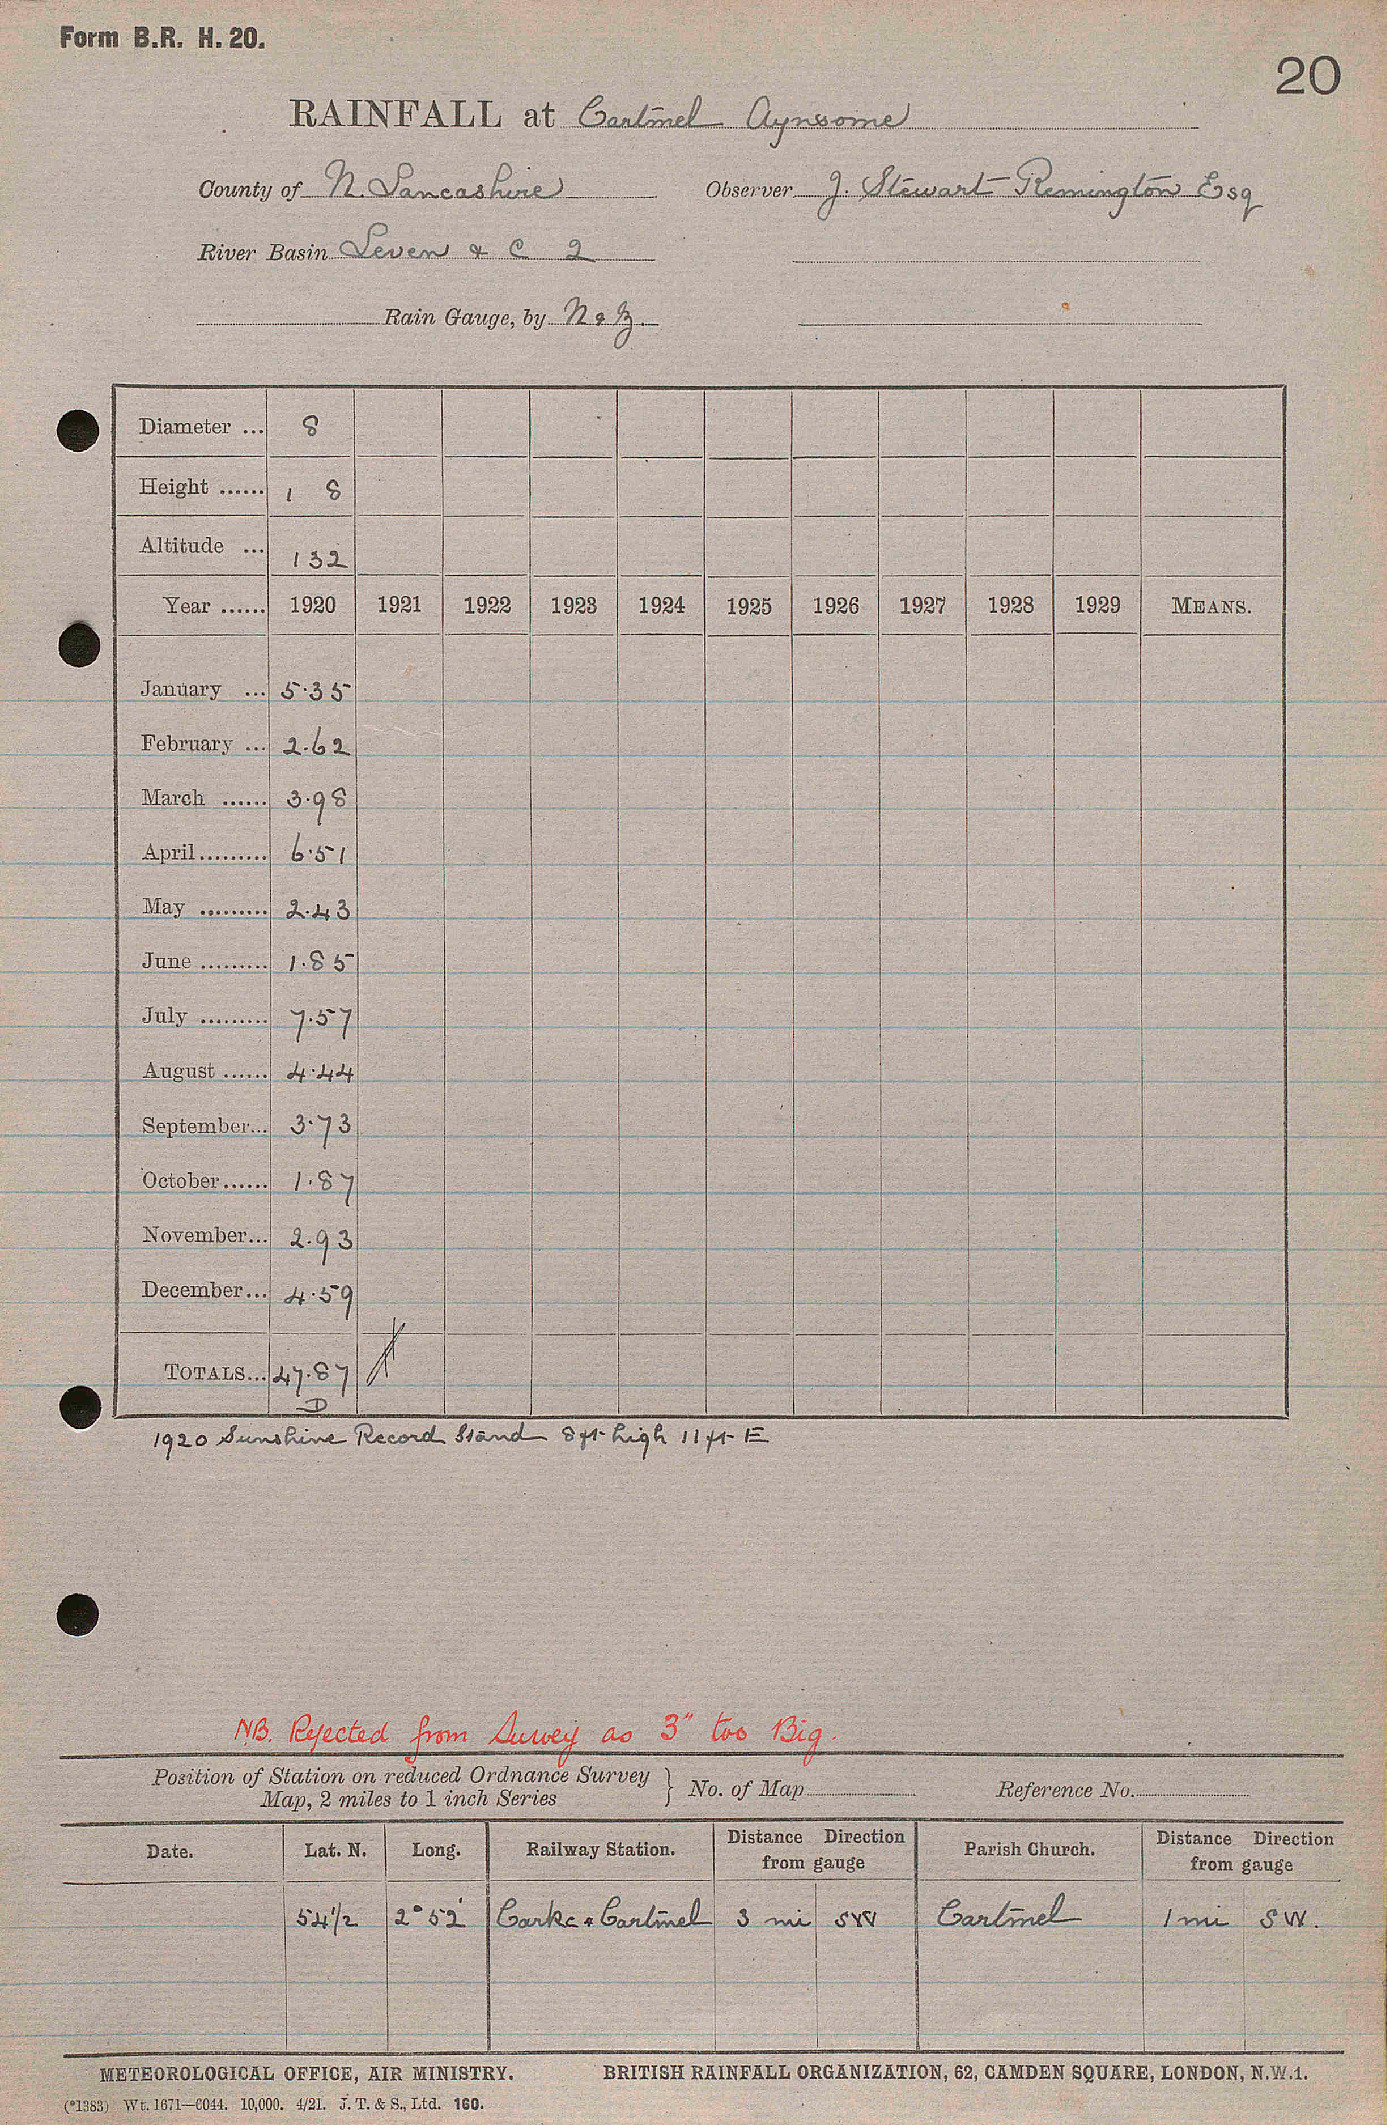 Form B.R. H. 20.
20
RAINFALL at Cartmel Aynsome
County of N. Lancashire Observer J. Stewart Remington Esq
River Basin Leven & C 2
Rain Gauge, by N & Z.
Diameter ... 8
Height ...... 1 8
Altitude ... 132
Year ...... 1920 1921 1922 1923 1924 1925 1926 1927 1928 1929 MEANS.
January ... 5.35
February ... 2.62
March ...... 3.98
April ......... 6.51
May ......... 2.43
June ......... 1.85
July ......... 7.57
August ...... 4.44
September... 3.73
October...... 1.87
November... 2.93
December... 4.59
TOTALS... 47.87
D
1920 Sunshine Record Stand 8ft high 11ft E
NB. Rejected from Survey as 3" too Big.
Position of Station on reduced Ordnance Survey
Map, 2 miles to 1 inch Series } No. of Map Reference No.
Date. Lat. N. Long. Railway Station. Distance Direction from gauge Parish Church. Distance Direction from gauge
54½ 2° 52' Carke & Cartmel 3 mi SW Cartmel 1 mi SW.
METEOROLOGICAL OFFICE, AIR MINISTRY. BRITISH RAINFALL ORGANIZATION, 62, CAMDEN SQUARE, LONDON, N.W.1.
(*1383) Wt. 1671—6044. 10,000. 4/21. J. T. & S., Ltd. 160.